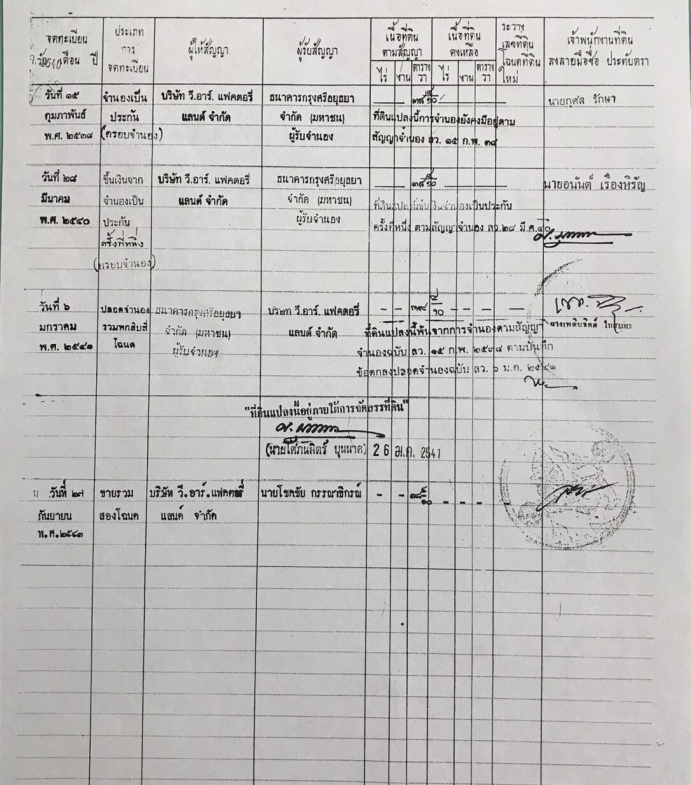 จดทะเบียน
วัน เดือน ปี
ประเภท
การ
จดทะเบียน
ผู้ให้สัญญา
ผู้รับสัญญา
เนื้อที่ดิน
ตามสัญญา
ไร่ งาน ตาราง
วา
เนื้อที่ดิน
คงเหลือ
ไร่ งาน ตาราง
วา
ระวาง
เลขที่ดิน
โฉนดที่ดิน
ใหม่
เจ้าพนักงานที่ดิน
ลงลายมือชื่อ ประทับตรา
วันที่ ๑๕ จำนองเป็น บริษัท วี.อาร์. แฟคตอรี่ ธนาคารกรุงศรีอยุธยา นายกุศล รักษา
กุมภาพันธ์ ประกัน แลนด์ จำกัด จำกัด (มหาชน) ที่ดินแปลงนี้การจำนองยังคงมีอยู่ตาม
พ.ศ. ๒๕๓๘ (กรอบจำนอง) ผู้รับจำนอง สัญญาจำนอง ลว. ๑๕ ก.พ. ๓๘
วันที่ ๒๘ ขึ้นเงินจาก บริษัท วี.อาร์. แฟคตอรี่ ธนาคารกรุงศรีอยุธยา นายอนันต์ เรืองหิรัญ
มีนาคม จำนองเป็น แลนด์ จำกัด จำกัด (มหาชน) เป็นประกัน
พ.ศ. ๒๕๔๐ ประกัน ผู้รับจำนอง ครั้งที่หนึ่ง ตามสัญญาจำนอง ลว.๒๘ มี.ค.๔๐
ครั้งที่หนึ่ง
(กรอบจำนอง)
วันที่ ๖ ปลอดจำนอง ธนาคารกรุงศรีอยุธยา บริษัท วี.อาร์. แฟคตอรี่
มกราคม จำกัด (มหาชน) แลนด์ จำกัด ที่ดินแปลงนี้พ้นจากการจำนองตามสัญญา
พ.ศ. ๒๕๔๑ โฉนด ผู้รับจำนอง จำนองฉบับ ลว. ๑๕ ก.พ. ๒๕๓๘ ตามบันทึก
ข้อตกลงปลอดจำนองฉบับ ลว. ๖ ม.ค. ๒๕๔๑
"ที่ดินแปลงนี้อยู่ภายใต้การจัดสรรที่ดิน"
บุนนาค) 26 ม.ค. 2541
วันที่ ๒๗ ขายรวม บริษัท วี.อาร์.แฟคตอรี่ นายโชคชัย
กันยายน สองโฉนด แลนด์ จำกัด
พ.ศ.๒๕๔๓